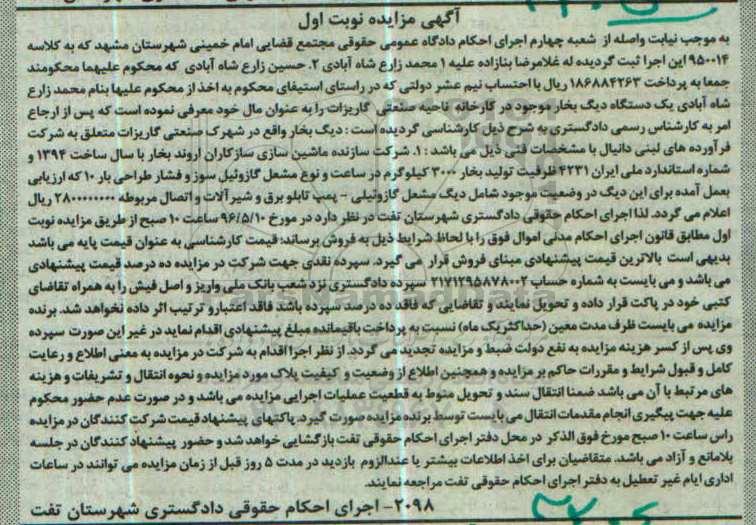 آگهی مزایده نوبت اول
به موجب نیابت واصله از شعبه چهارم اجرای احکام دادگاه عمومی حقوقی مجتمع قضایی امام خمینی شهرستان مشهد که به کلاسه
۹۵۰۰۱۴ این اجرا ثبت گردیده له غلامرضا بنازاده علیه ۱ محمد زارع شاه آبادی ۲. حسین زارع شاه آبادی که محکوم علیهما محکومند
جمعا به پرداخت ۱۸۶۸۸۴۲۶۳ ریال با احتساب نیم عشر دولتی که در راستای استیفای محکوم به اخذ از محکوم علیها بنام محمد زارع
شاه آبادی یک دستگاه دیگ بخار موجود در کارخانه ناحیه صنعتی گاریزات را به عنوان مال خود معرفی نموده است که پس از ارجاع
امر به کارشناس رسمی دادگستری به شرح ذیل کارشناسی گردیده است : دیگ بخار واقع در شهرک صنعتی گاریزات متعلق به شرکت
فرآورده های لبنی دانیال با مشخصات فنی ذیل می باشد : ۱. شرکت سازنده ماشین سازی سازکاران اروند بخار با سال ساخت ۱۳۹۴ و
شماره استاندارد ملی ایران ۴۲۳۱ ظرفیت تولید بخار ۳۰۰۰ کیلوگرم در ساعت و نوع مشعل گازوئیل سوز و فشار طراحی بار ۱۰ که ارزیابی
بعمل آمده برای این دیگ در وضعیت موجود شامل دیگ مشعل گازوئیلی - پمپ تابلو برق و شیر آلات و اتصال مربوطه ۲۸۰۰۰۰۰۰۰۰ ریال
اعلام می گردد. لذا اجرای احکام حقوقی دادگستری شهرستان تفت در نظر دارد در مورخ ۹۶/۵/۱۰ ساعت ۱۰ صبح از طریق مزایده نوبت
اول مطابق قانون اجرای احکام مدنی اموال فوق را با لحاظ شرایط ذیل به فروش برساند: قیمت کارشناسی به عنوان قیمت پایه می باشد
بدیهی است بالاترین قیمت پیشنهادی مبنای فروش قرار می گیرد. سپرده نقدی جهت شرکت در مزایده ده درصد قیمت پیشنهادی
می باشد و می بایست به شماره حساب ۲۱۷۱۲۹۵۸۷۸۰۰۲ سپرده دادگستری نزد شعب بانک ملی واریز و اصل فیش را به همراه تقاضای
کتبی خود در پاکت قرار داده و تحویل نمایند و تقاضایی که فاقد ده درصد سپرده باشد فاقد اعتبار و ترتیب اثر داده نخواهد شد. برنده
مزایده می بایست ظرف مدت معین (حداکثر یک ماه) نسبت به پرداخت باقیمانده مبلغ پیشنهادی اقدام نماید در غیر این صورت سپرده
وی پس از کسر هزینه مزایده به نفع دولت ضبط و مزایده تجدید می گردد. از نظر اجرا اقدام به شرکت در مزایده به معنی اطلاع و رعایت
کامل و قبول شرایط و مقررات حاکم بر مزایده و همچنین اطلاع از وضعیت و کیفیت پلاک مورد مزایده و نحوه انتقال و تشریفات و هزینه
های مرتبط با آن می باشد ضمنا انتقال سند و تحویل منوط به قطعیت عملیات اجرایی مزایده می باشد و در صورت عدم حضور محکوم
علیه جهت پیگیری انجام مقدمات انتقال می بایست توسط برنده مزایده صورت گیرد. پاکتهای پیشنهاد قیمت شرکت کنندگان در مزایده
راس ساعت ۱۰ صبح مورخ فوق الذکر در محل دفتر اجرای احکام حقوقی تفت بازگشایی خواهد شد و حضور پیشنهاد کنندگان در جلسه
بلامانع و آزاد می باشد. متقاضیان برای اخذ اطلاعات بیشتر یا عنداللزوم بازدید در مدت ۵ روز قبل از زمان مزایده می توانند در ساعات
اداری ایام غیر تعطیل به دفتر اجرای احکام حقوقی تفت مراجعه نمایند.
۲۰۹۸- اجرای احکام حقوقی دادگستری شهرستان تفت